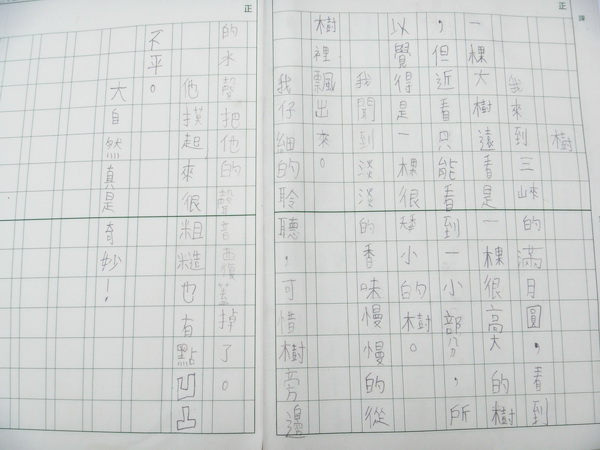 樹
我來到三峽的滿月圓，看到
一棵大樹遠看是一棵很高大的樹
，但近看只能看到一小部分，所
以覺得是一棵很矮小的樹。
我聞到淡淡的香味慢慢的從
樹裡飄出來。
我仔細的聆聽，可惜樹旁邊
的水聲把他的聲音覆蓋掉了。
他摸起來很粗糙也有點凹凸
不平。
大自然真是奇妙！
正
正